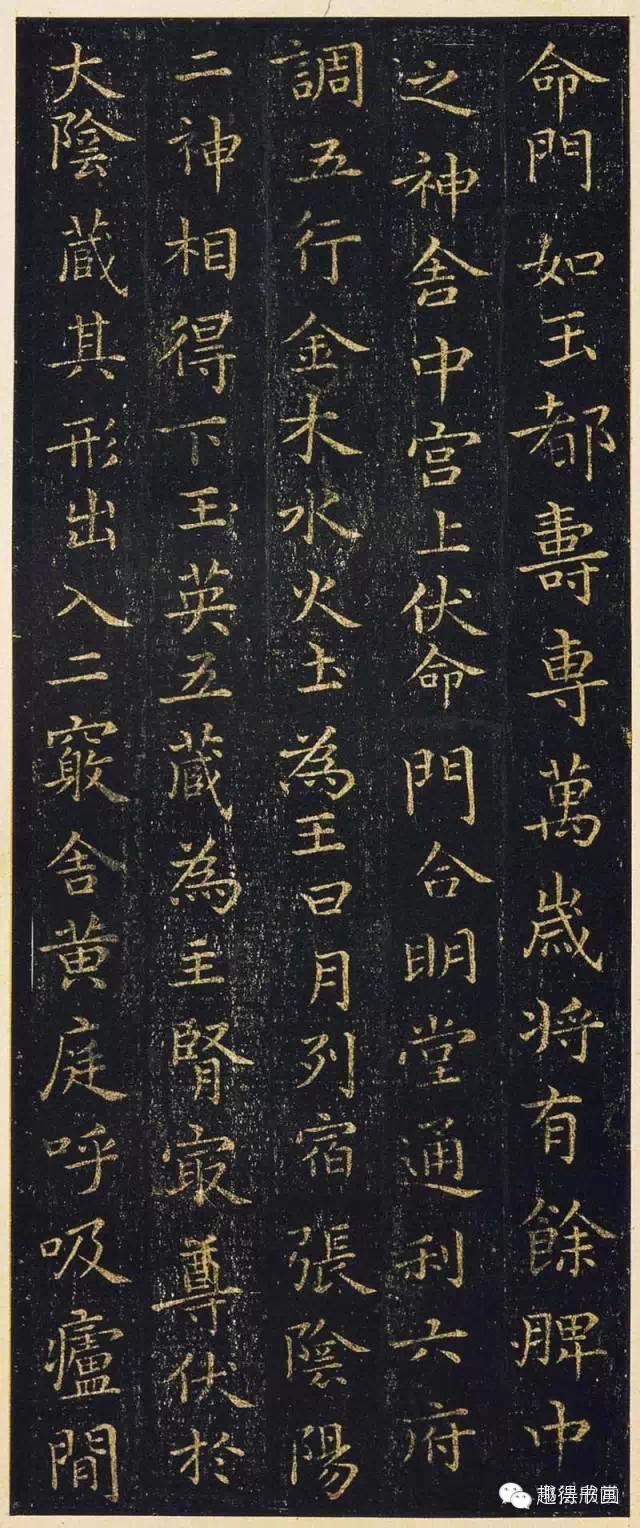 命門如玉都壽専萬歲将有餘脾中
之神舍中宫上伏命門合明堂通利六府
調五行金木水火土為王日月列宿張陰陽
二神相得下玉英五藏為主腎㝡尊伏於
大陰藏其形出入二竅舍黄庭呼吸廬間
趣得欣圃